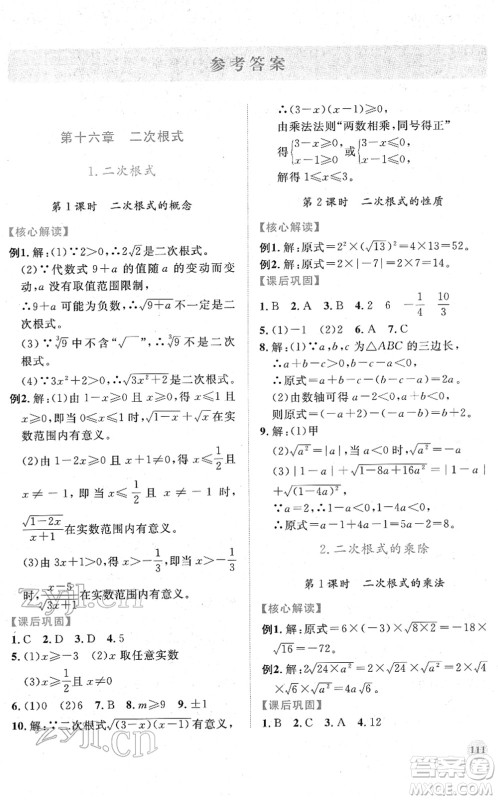 参考答案
第十六章 二次根式
1.二次根式
第1课时 二次根式的概念
【核心解读】
例1.解:(1)∵2>0,∴√2是二次根式.
(2)∵代数式9+a的值随a的变动而变动,a没有取值范围限制,
∴9+a可能为负数,√(9+a)不一定是二次根式.
(3)∵∛9中不含“√ ”,∴∛9不是二次根式.
(4)∵3x²+2>0,∴√(3x²+2)是二次根式.
例2.解:(1)由x≥0且1-x≥0,得0≤x≤1,即当0≤x≤1时,√x+√(1-x)在实数范围内有意义.
(2)由1-2x≥0且x+1≠0,得x≤1/2且x≠-1,即当x≤1/2且x≠-1时,√(1-2x)/(x+1)在实数范围内有意义.
(3)由3x+1>0,得x>-1/3,即当x>-1/3时,(x-5)/√(3x+1)在实数范围内有意义.
【课后巩固】
1.C 2.D 3.D 4.5
5.(1)x≥-3 (2)x取任意实数
6.(1)0 (2)-6 7.0 8.m≥9 9.±1
10.解:∵二次根式√((3-x)(x-1))有意义,
∴(3-x)(x-1)≥0,
由乘法法则“两数相乘,同号得正”
得{3-x≥0, x-1≥0 或{3-x≤0, x-1≤0.
解得:1≤x≤3.
第2课时 二次根式的性质
【核心解读】
例1.解:原式=2²×(√13)²=4×13=52.
例2.解:原式=2×|-7|=2×7=14.
【课后巩固】
1.B 2.A 3.B 4.2 6 -1/4 10/3
5.(1)-1 (2)-4
8.解:(1)∵a,b,c为△ABC的三边长,
∴a-b-c<0,
∴原式=-a+b+c.
(2)由数轴可得:a-1<0,
∴原式=(-a)+(1-a)=1-2a.
9.解:(1)甲
(2)√a²=|a|,当a<0时,√a²=-a
(3)原式=|1-a|+√(1-8a+16a²)=|1-a|+√((1-4a)²)=|1-a|+|1-4a|
∵a>2,∴1-a<0,1-4a<0.
∴原式=a-1+4a-1=5a-2.
2.二次根式的乘除
第1课时 二次根式的乘法
【核心解读】
例1.解:原式=6×(-3)×√(8×2)=-18×√16=-72.
例2.解:原式=2√(24×a²)=2×√24×√a²=2×√4×√6×√a²=4√6a.
【课后巩固】
1.B 2.C 3.A 4.12
111
zyjl.cn
zyjl.cn
答案圈